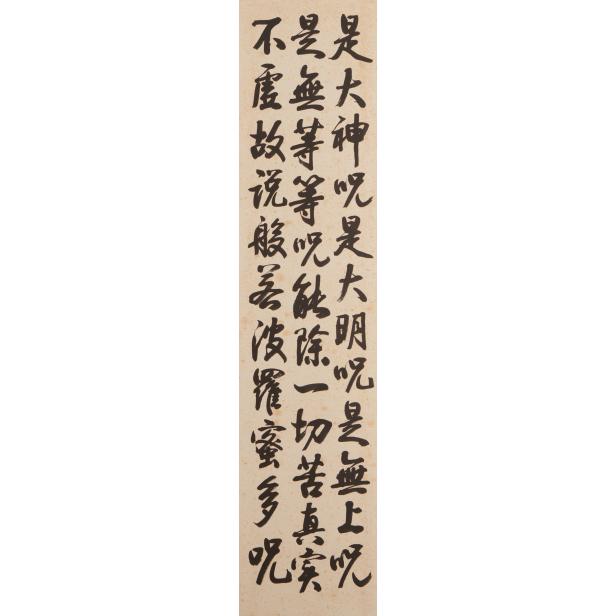 是大神呪是大明呪是無上呪
是無等等呪能除一切苦真实
不虚故说般若波羅蜜多呪